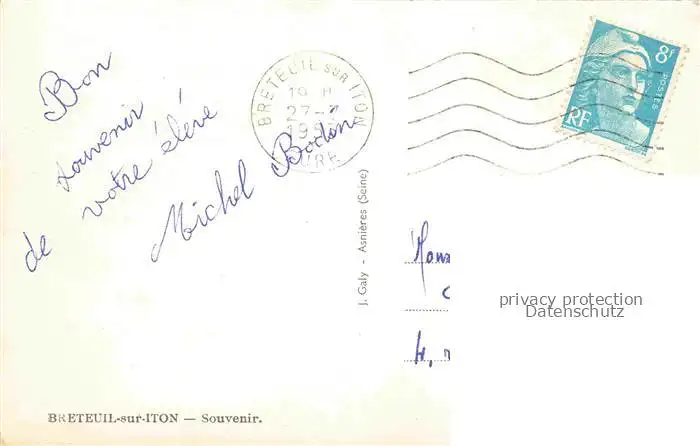 Bon
souvenir
de votre élève
Michel
BRETEUIL SUR ITON
27-7
EURE
8f
POSTES
RF
J. Galy - Asnières (Seine)
4,
privacy protection
Datenschutz
BRETEUIL-sur-ITON — Souvenir.